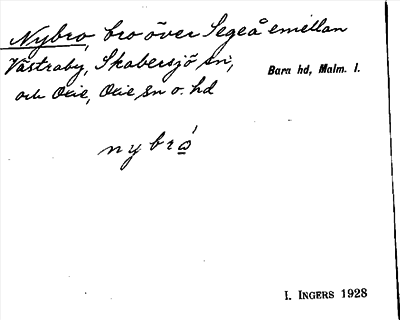 Nybro, bro över Segeå emellan
Västraby, Skabersjö sn,
Bara hd, Malm. l.
och Oxie, Oxie sn o. hd
nybró
I. INGERS 1928